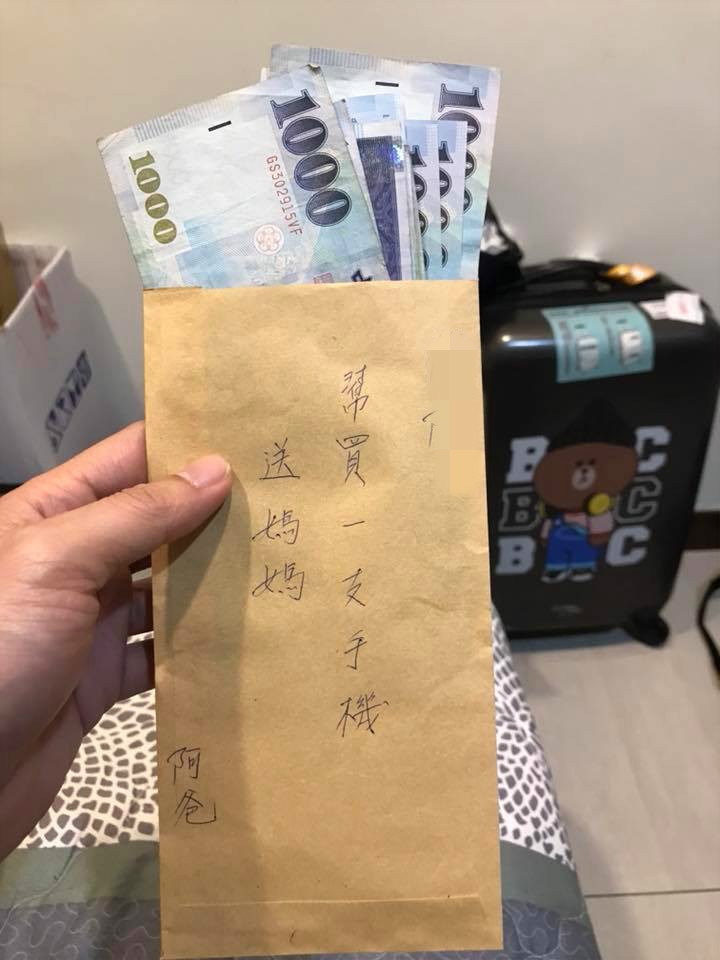 1000
1000
GS302915VF
1000
幫買一支手機
送媽媽
阿爸
B C
B C
B C